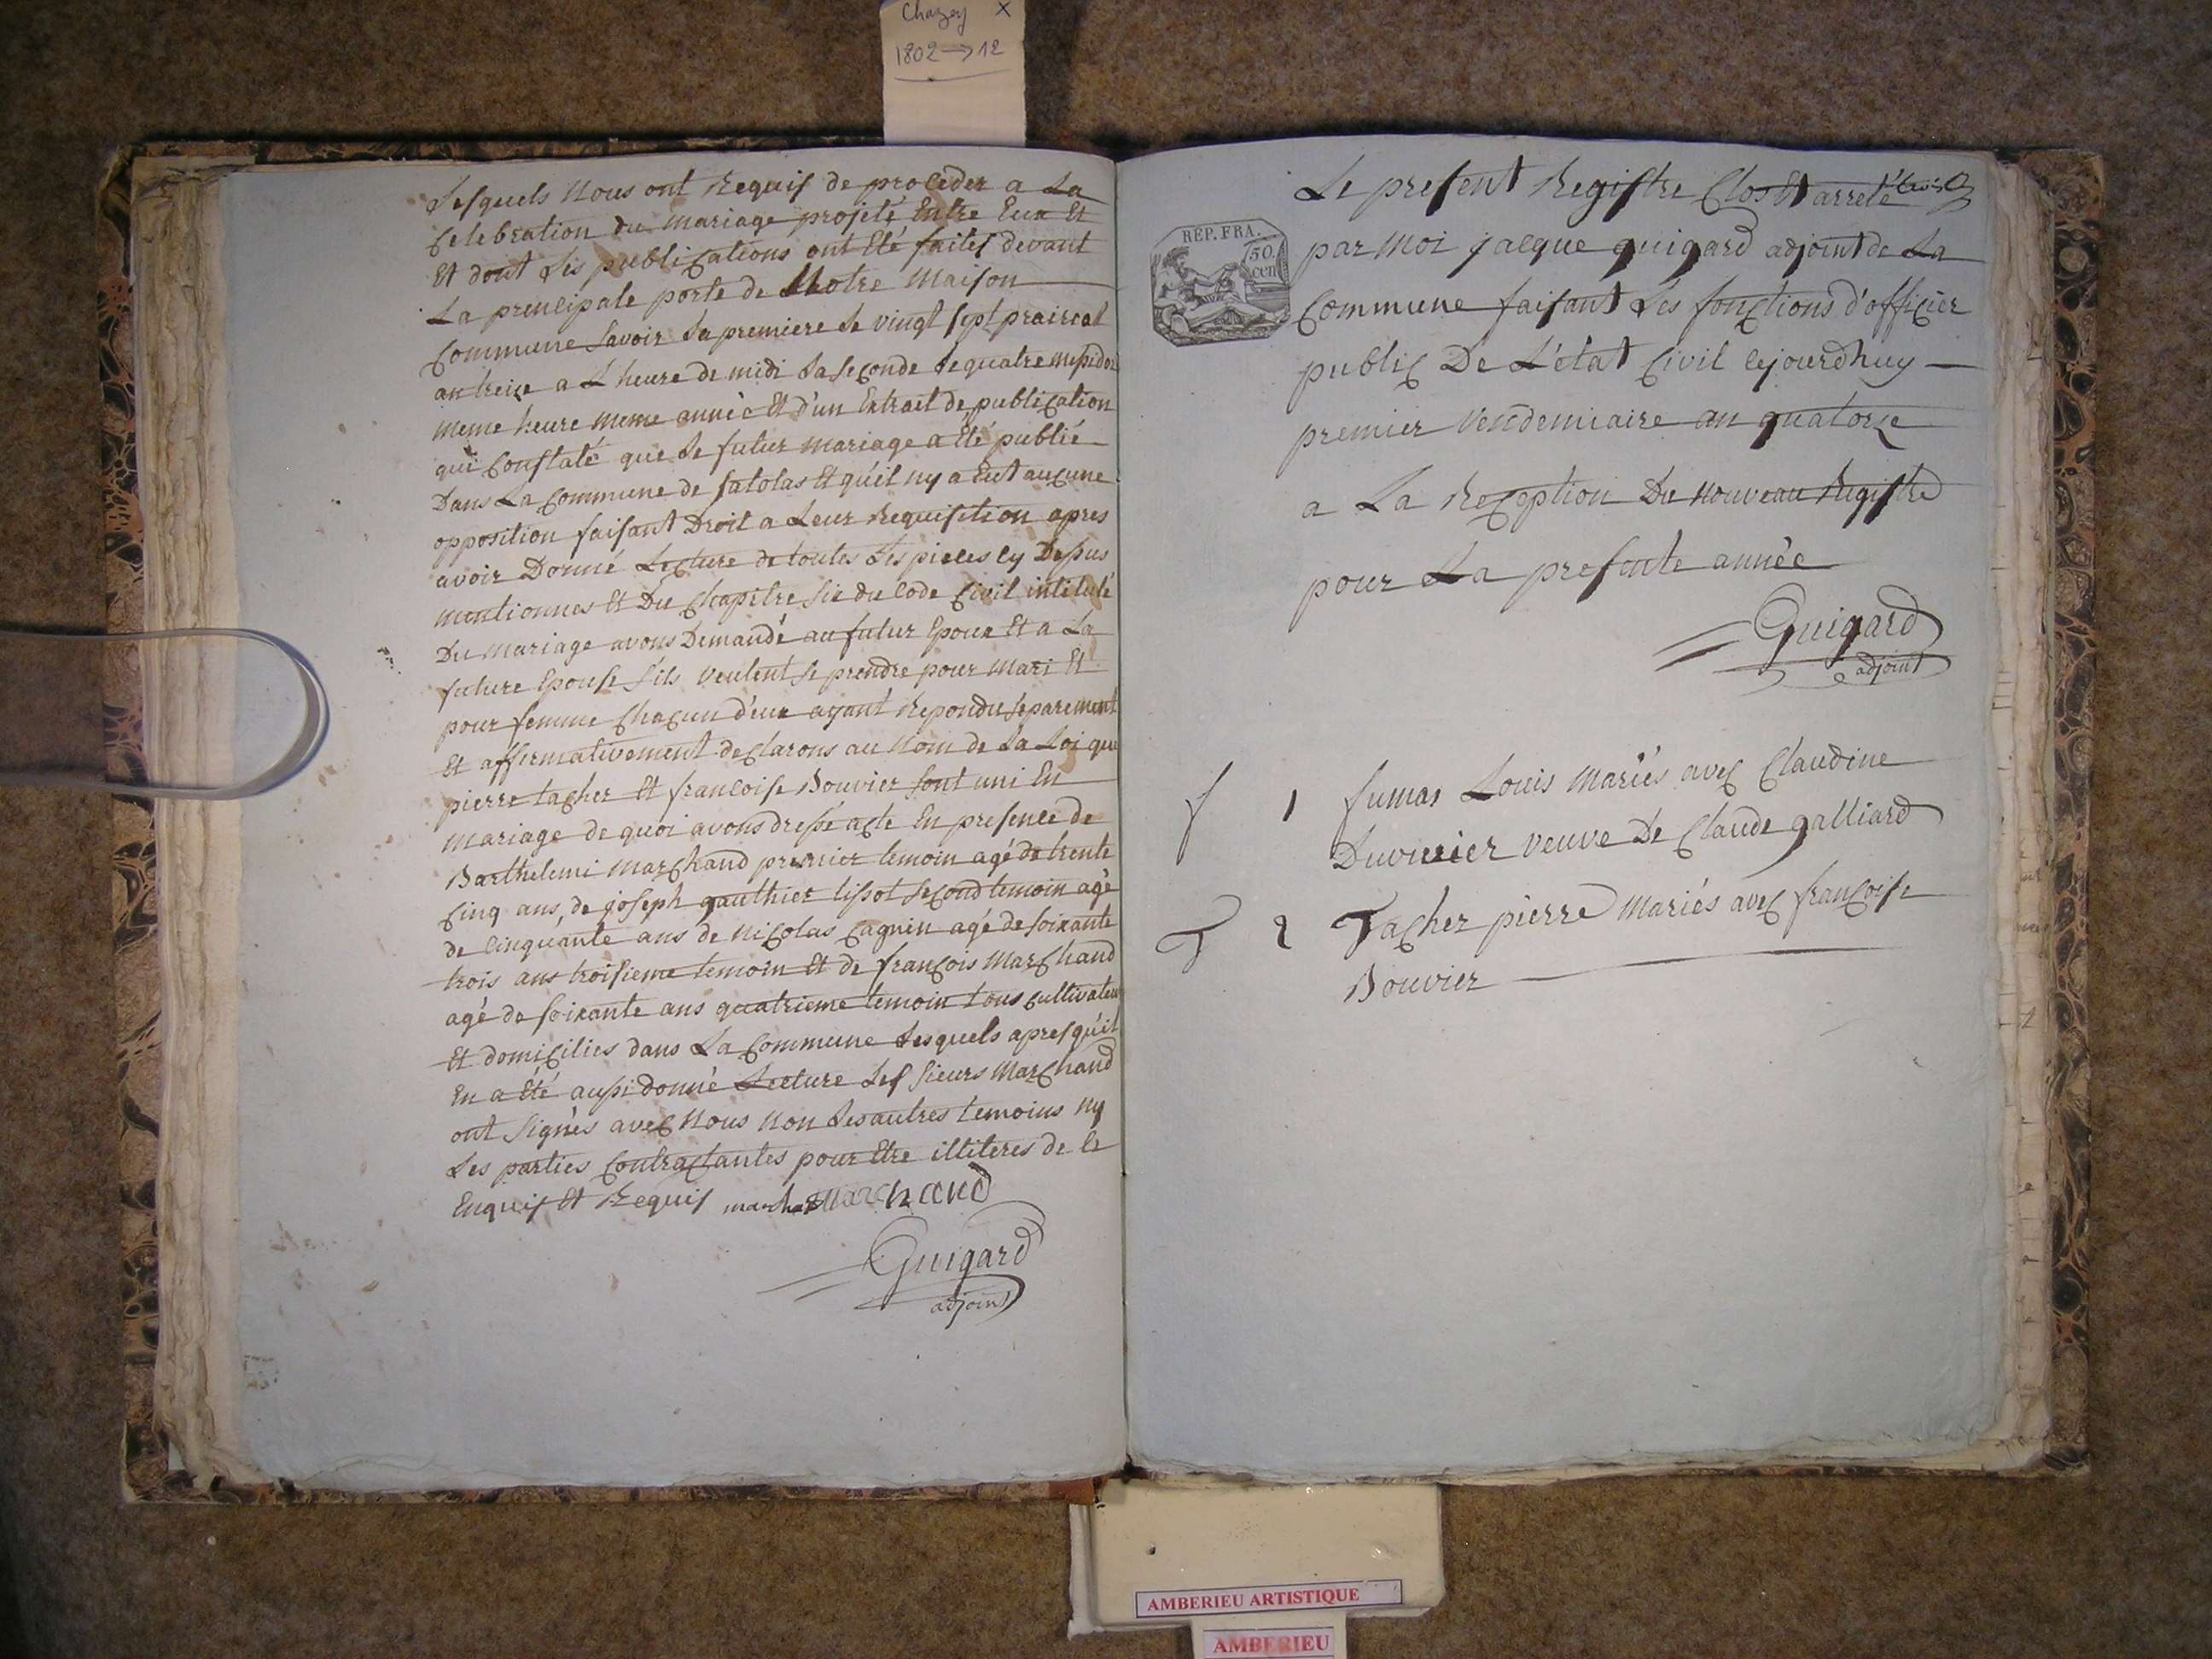 Chazey X
1802 → 12
Lesquels Nous ont Requis de proceder a La
Celebration du mariage projeté Entre Eux Et
Et dont Les publications ont Eté faites devant
La principale porte de Notre Maison
Commune Savoir La premiere Le vingt sept prairial
an treize a L'heure de midi La seconde Le quatre messidor
meme heure meme année Et d'un Extrait de publication
qui Constaté que Le futur mariage a Eté publié
Dans La Commune de Satolas Et qu'il ny a Eut aucune
opposition faisant Droit a Leur Requisition apres
avoir Donné Lecture de toutes Les pieces cy Dessus
mentionnes Et Du Chapitre six du Code Civil intitulé
Du Mariage avons Demandé au futur Epoux Et a La
future Epouse s'ils veulent se prendre pour Mari Et
pour femme Chacun d'eux ayant Repondu separement
Et affirmativement declarons au Nom de La Loi que
pierre tacher Et francoise Bouvier sont uni En
Mariage de quoi avons dressé acte En presence de
Barthelemi Marchand premier temoin agé de trente
Cinq ans, de joseph gauthier tissot second temoin agé
de cinquante ans de Nicolas Cagnin agé de soixante
trois ans troisieme temoin Et de françois Marchand
agé de soixante ans quatrieme temoin tous cultivateur
Et domicilies dans La Commune Lesquels apres qu'il
En a Eté aussi donné Lecture Les sieurs Marchand
ont Signés avec Nous Non Les autres temoins ny
Les parties Contractantes pour Etre illiteres de ce
Enquis Et Requis marcha Marchand
Guigard
adjoint
REP. FRA.
50.
cen
Le present Registre Clos Et arreté
par Moi jacque guigard adjoint de La
Commune faisant Les fonctions d'officier
public De L'état Civil cejourdhuy
premier Vendemiaire an quatorze
a La Reception Du Nouveau Registre
pour La presente année
Guigard
adjoint
f 1 fumas Louis Mariés avec Claudine
Duvurier veuve De Claude galliard
T 2 Tacher pierre Mariés avec françoise
Bouvier
AMBERIEU ARTISTIQUE
AMBERIEU